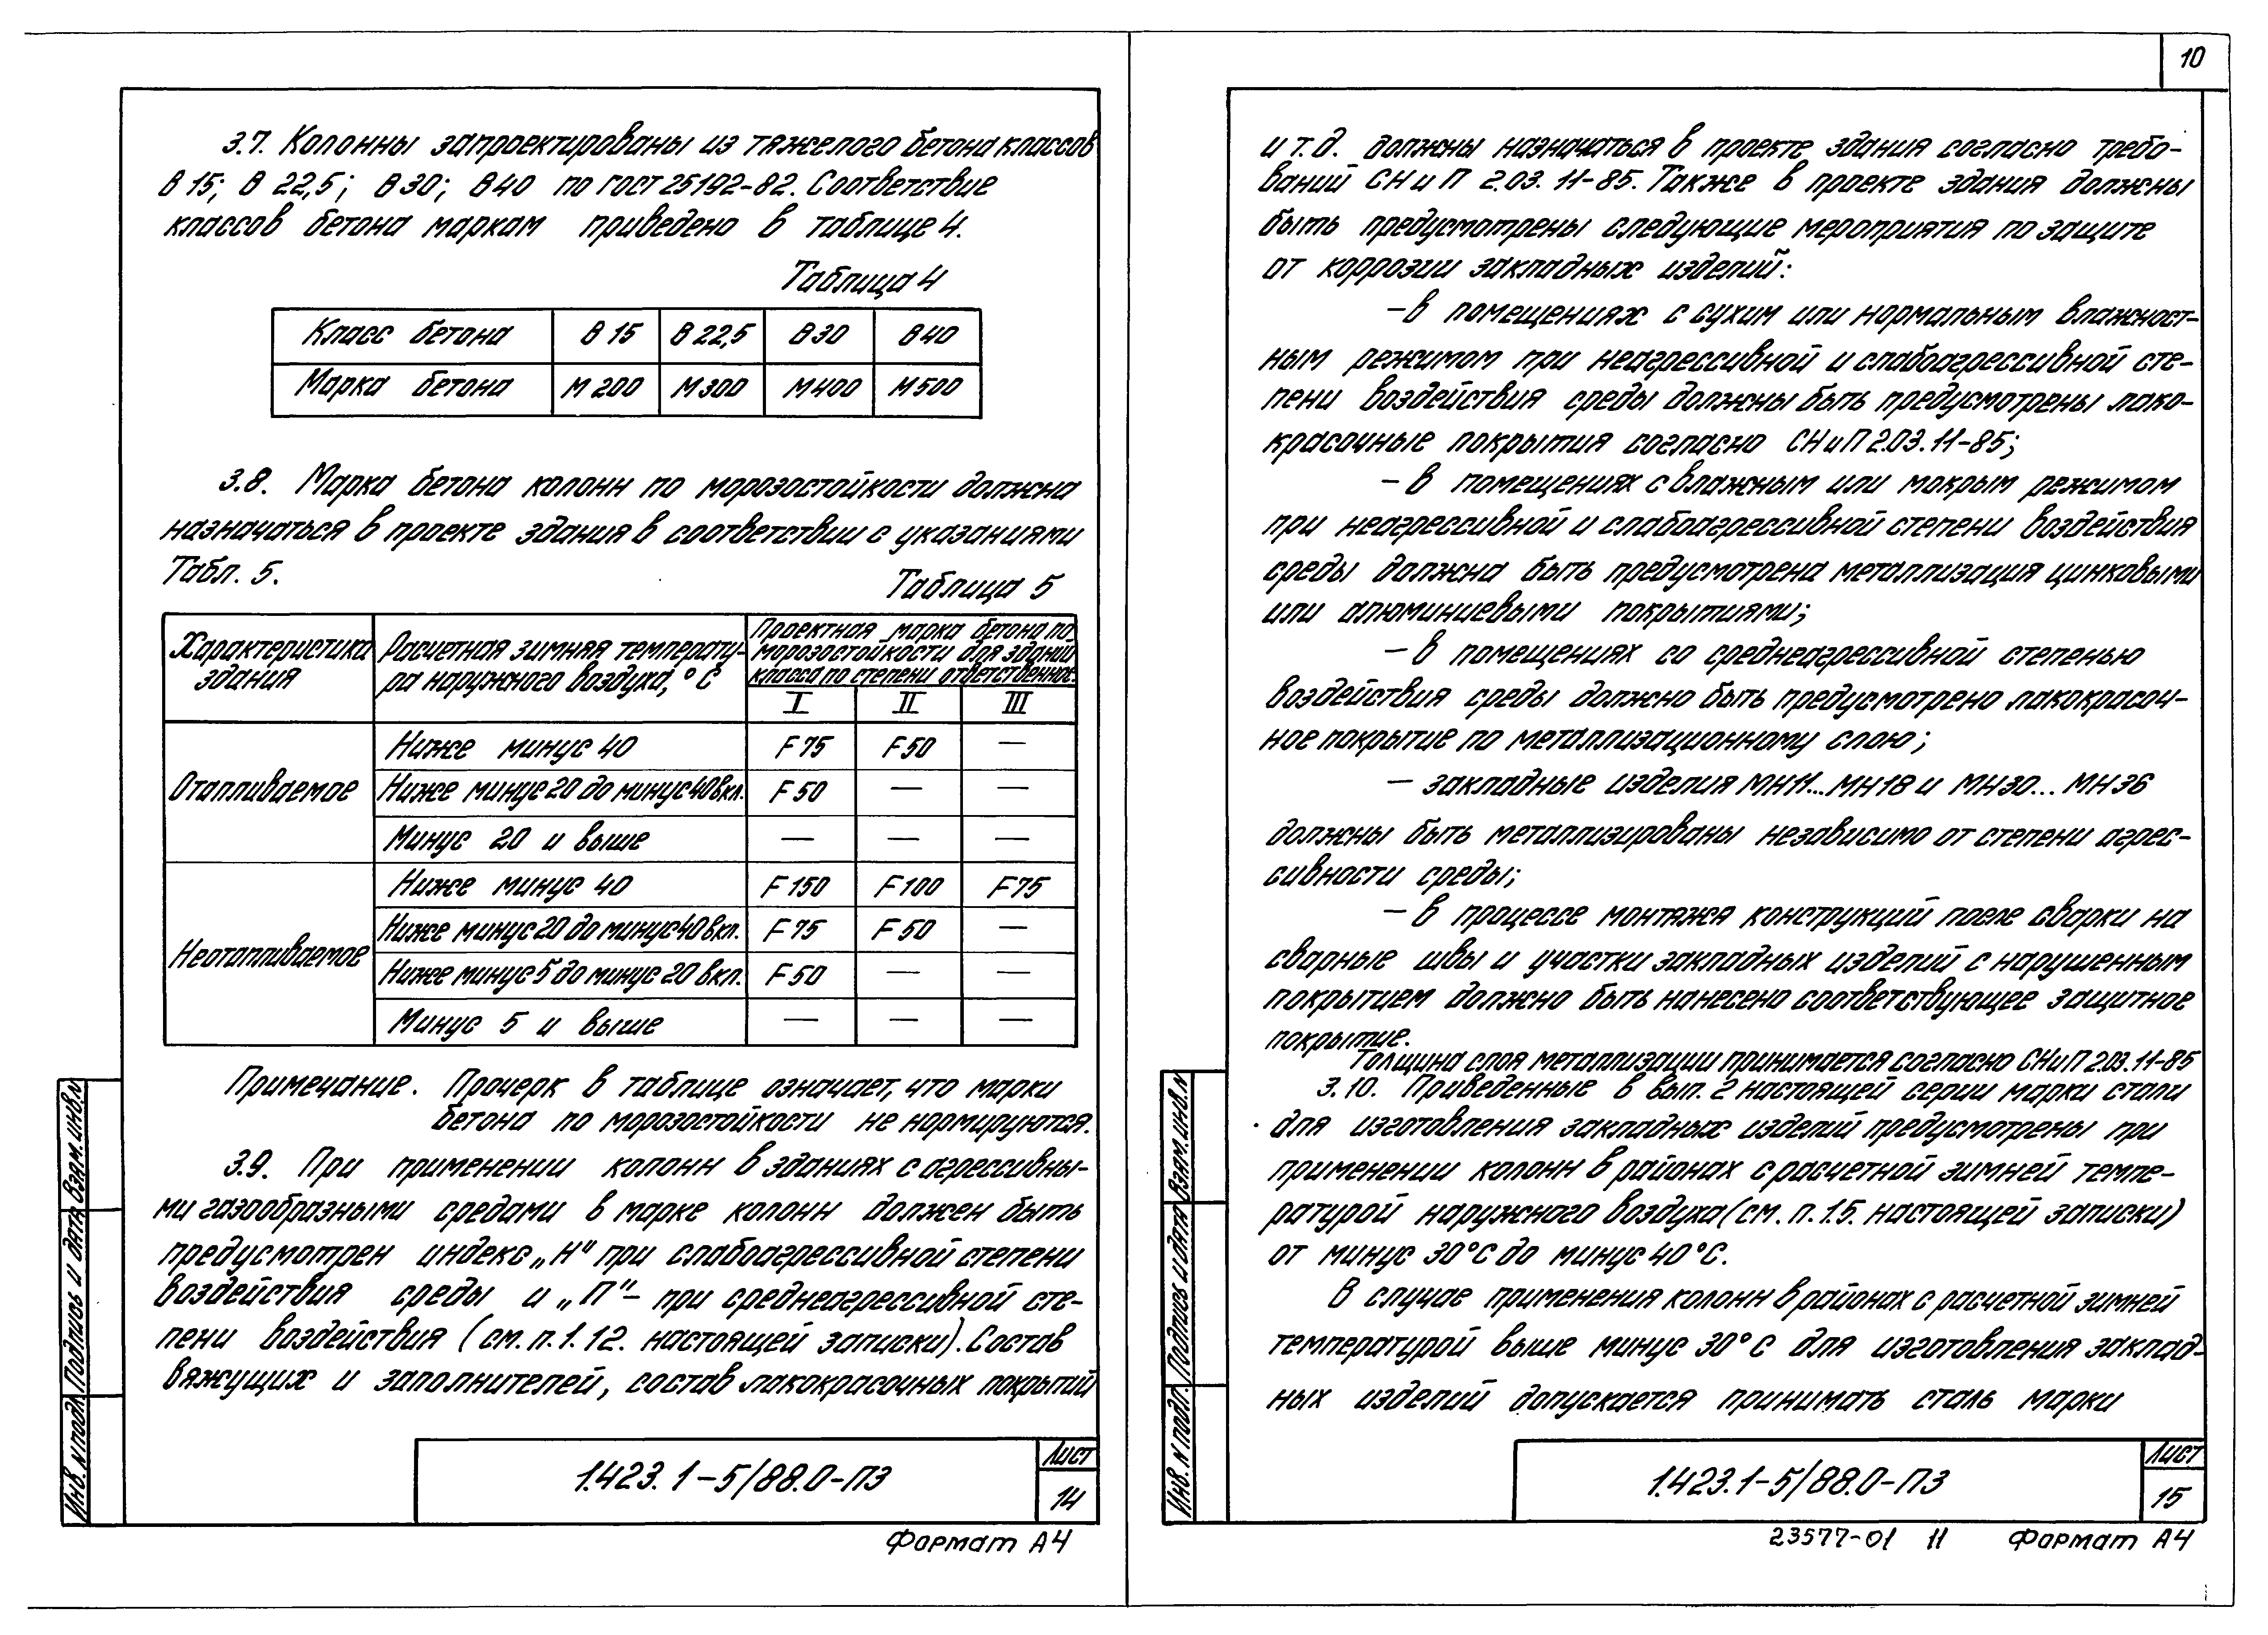 3.7. Колонны запроектированы из тяжелого бетона классов
В 15; В 22,5; В 30; В 40 по ГОСТ 25192-82. Соответствие
классов бетона маркам приведено в таблице 4.
Таблица 4
Класс бетона В 15 В 22,5 В 30 В 40
Марка бетона М 200 М 300 М 400 М 500
3.8. Марка бетона колонн по морозостойкости должна
назначаться в проекте здания в соответствии с указаниями
Табл. 5.
Таблица 5
Характеристика здания
Расчетная зимняя температу-
ра наружного воздуха, °С
Проектная марка бетона по
морозостойкости для зданий
класса по степени ответственнос.
I II III
Отапливаемое
Ниже минус 40 F 75 F 50 —
Ниже минус 20 до минус 40 вкл. F 50 — —
Минус 20 и выше — — —
Неотапливаемое
Ниже минус 40 F 150 F 100 F 75
Ниже минус 20 до минус 40 вкл. F 75 F 50 —
Ниже минус 5 до минус 20 вкл. F 50 — —
Минус 5 и выше — — —
Примечание. Прочерк в таблице означает, что марки
бетона по морозостойкости не нормируются.
3.9. При применении колонн в зданиях с агрессивны-
ми газообразными средами в марке колонн должен быть
предусмотрен индекс „Н" при слабоагрессивной степени
воздействия среды и „П"- при среднеагрессивной сте-
пени воздействия (см. п. 1. 12. настоящей записки). Состав
вяжущих и заполнителей, состав лакокрасочных покрытий
Инв. N подл. Подпись и дата Взам. инв. N
1.423.1-5/88.0-ПЗ
Лист
14
Формат А4
10
и т. д. должны назначаться в проекте здания согласно требо-
ваний СНиП 2.03. 11-85. Также в проекте здания должны
быть предусмотрены следующие мероприятия по защите
от коррозии закладных изделий:
- в помещениях с сухим или нормальным влажност-
ным режимом при неагрессивной и слабоагрессивной сте-
пени воздействия среды должны быть предусмотрены лако-
красочные покрытия согласно СНиП 2.03. 11-85;
- в помещениях с влажным или мокрым режимом
при неагрессивной и слабоагрессивной степени воздействия
среды должна быть предусмотрена металлизация цинковыми
или алюминиевыми покрытиями;
- в помещениях со среднеагрессивной степенью
воздействия среды должно быть предусмотрено лакокрасоч-
ное покрытие по металлизационному слою;
- закладные изделия МН11...МН18 и МН30...МН36
должны быть металлизированы независимо от степени агрес-
сивности среды;
- в процессе монтажа конструкций после сварки на
сварные швы и участки закладных изделий с нарушенным
покрытием должно быть нанесено соответствующее защитное
покрытие.
Толщина слоя металлизации принимается согласно СНиП 2.03. 11-85
3.10. Приведенные в вып. 2 настоящей серии марки стали
для изготовления закладных изделий предусмотрены при
применении колонн в районах с расчетной зимней темпе-
ратурой наружного воздуха (см. п. 1.5. настоящей записки)
от минус 30°С до минус 40°С.
В случае применения колонн в районах с расчетной зимней
температурой выше минус 30°С для изготовления заклад-
ных изделий допускается принимать сталь марки
Инв. N подл. Подпись и дата Взам. инв. N
1.423.1-5/88.0-ПЗ
Лист
15
23577-01 11 Формат А4